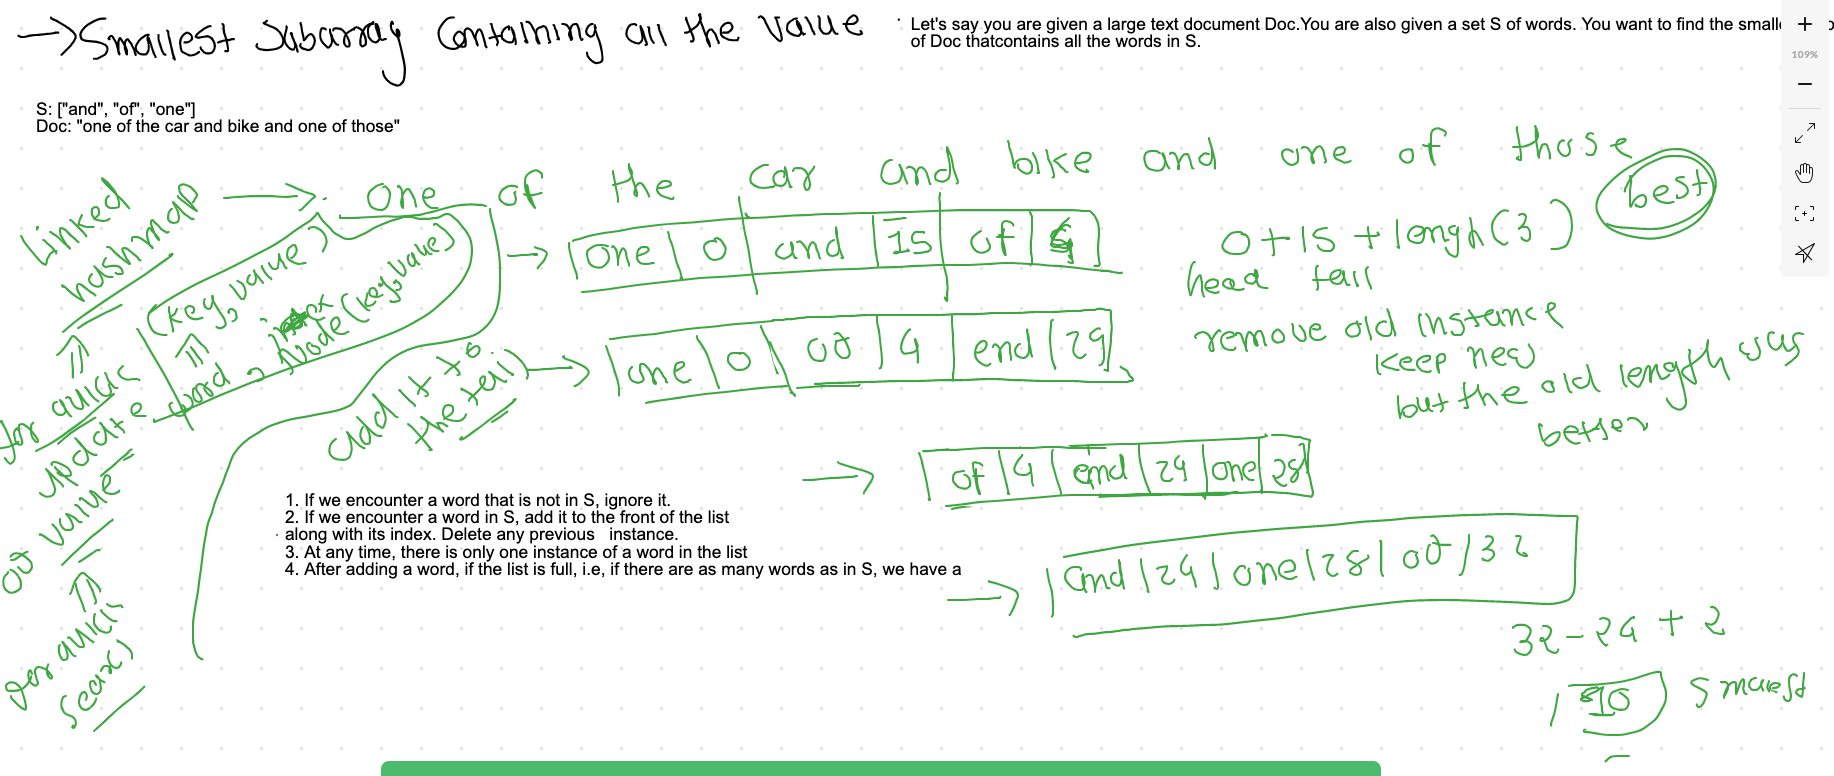 → Smallest Subarray Containing all the value
Let's say you are given a large text document Doc.You are also given a set S of words. You want to find the small
of Doc thatcontains all the words in S.
109%
S: ["and", "of", "one"]
Doc: "one of the car and bike and one of those"
Linked hashmap → one of the car and bike and one of those
best
(key, value)
word → Node(key, value)
for quick update of value
for quick search
add it to the tail
→ one | 0 | and | 15 | of | 4
0 + 15 + lengh(3)
head tail
→ one | 0 | of | 4 | and | 24
remove old instance
keep new
but the old length was better
→ of | 4 | and | 24 | one | 28
1. If we encounter a word that is not in S, ignore it.
2. If we encounter a word in S, add it to the front of the list
along with its index. Delete any previous instance.
3. At any time, there is only one instance of a word in the list
4. After adding a word, if the list is full, i.e, if there are as many words as in S, we have a
→ and | 24 | one | 28 | of | 32
32 - 24 + 2
10 smallest